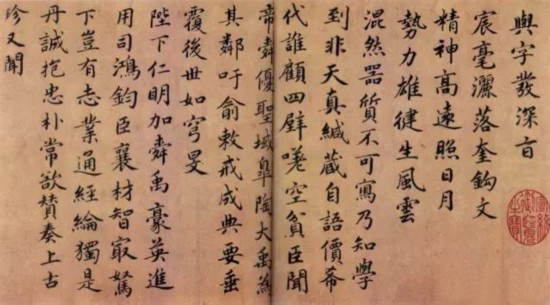 與字發深旨
宸毫灑落奎鉤文
精神高遠照日月
勢力雄健生風雲
混然器質不可寫乃知學
到非天真緘藏自語價希
代誰顧四壁嗟空貧臣聞
帝舜優聖域皋陶大禹為
其鄰吁俞敕戒成典要垂
覆後世如穹旻
陛下仁明加舜禹豪英進
用司鴻鈞臣襄材智冣駑
下豈有志業通經綸獨是
丹誠抱忠朴常欲贊奏上古
珍又聞